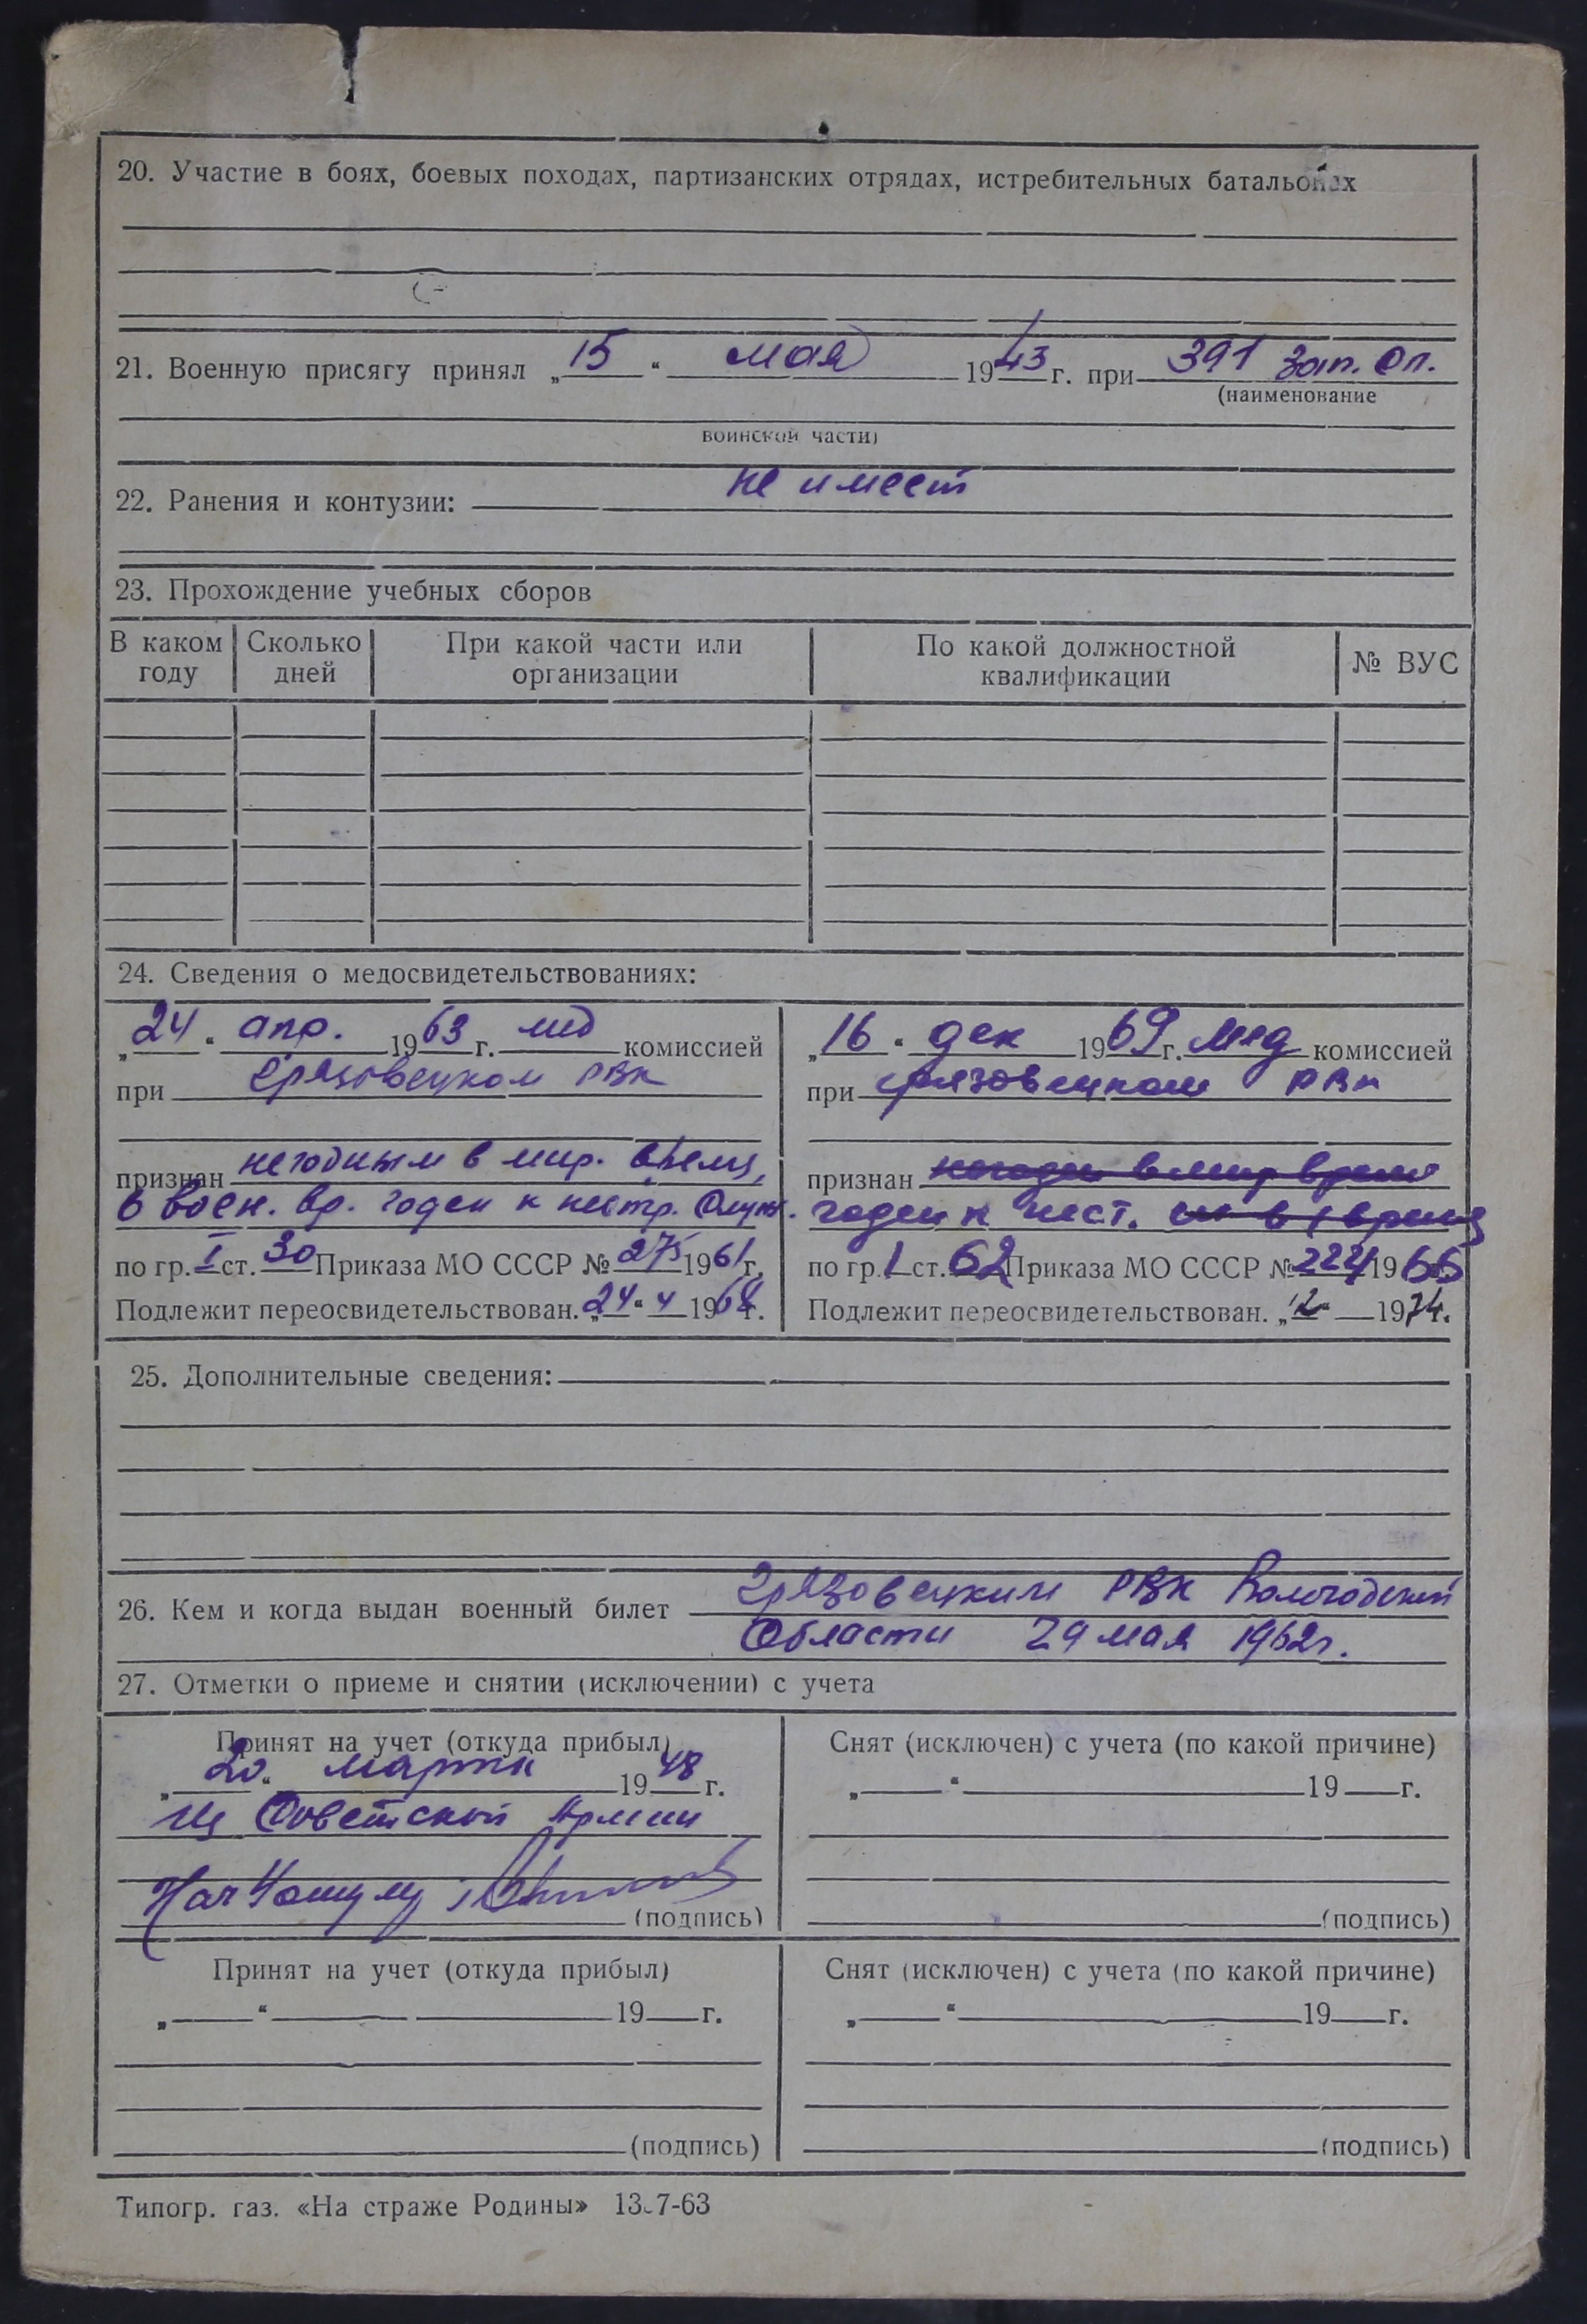 20. Участие в боях, боевых походах, партизанских отрядах, истребительных батальонах
21. Военную присягу принял „15“ мая 1943 г. при 391 зап. сп.
(наименование
воинской части)
22. Ранения и контузии: не имеет
23. Прохождение учебных сборов
В каком году
Сколько дней
При какой части или организации
По какой должностной квалификации
№ ВУС
24. Сведения о медосвидетельствованиях:
„24“ апр. 1963 г. мед комиссией
при Грязовецком РВК
признан негодным в мир. время,
в воен. вр. годен к нестр. служ.
по гр. I ст. 30 Приказа МО СССР № 275 1961 г.
Подлежит переосвидетельствован. „24“ 4 1968 г.
„16“ дек 1969 г. мед комиссией
при Грязовецком РВК
признан негоден в мир время
годен к нест. в время
по гр. 1 ст. 62 Приказа МО СССР № 224 1966
Подлежит переосвидетельствован. „12“ 1974.
25. Дополнительные сведения:
26. Кем и когда выдан военный билет Грязовецким РВК Вологодской
области 29 мая 1962г.
27. Отметки о приеме и снятии (исключении) с учета
Принят на учет (откуда прибыл)
„20“ марта 1948 г.
Из Советской Армии
(подпись)
Снят (исключен) с учета (по какой причине)
„ “ 19 г.
(подпись)
Принят на учет (откуда прибыл)
„ “ 19 г.
(подпись)
Снят (исключен) с учета (по какой причине)
„ “ 19 г.
(подпись)
Типогр. газ. «На страже Родины» 13.7-63